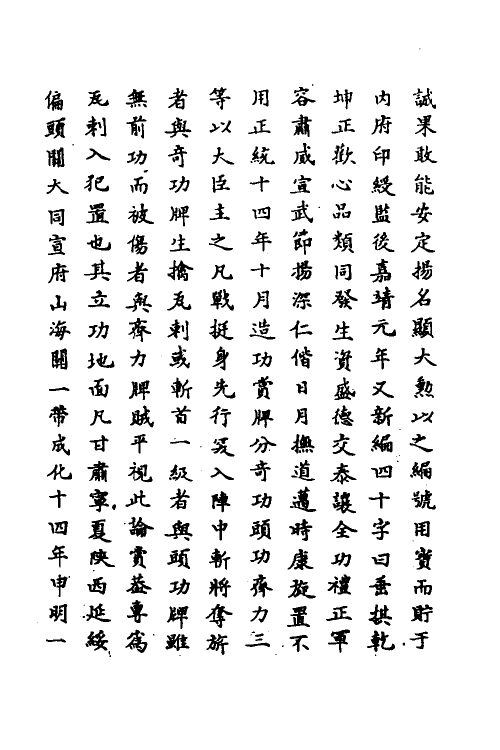 誠果敢能安定揚名顯大勲以之編號用寶而貯于
内府印綬監後嘉靖元年又新編四十字曰垂拱乾
坤正歡心品類同發生資盛德交泰讓全功禮正軍
容肅威宣武節揚深仁偕日月撫道邁時康旋置不
用正統十四年十月造功賞牌分奇功頭功齊力三
等以大臣主之凡戰挺身先行突入陣中斬將奪旂
者與奇功牌生擒瓦剌或斬首一級者與頭功牌雖
無前功而被傷者與齊力牌賊平視此論賞葢專為
瓦剌入犯置也其立功地面凡甘肅寧夏陜西延綏
偏頭關大同宣府山海關一帶成化十四年申明一